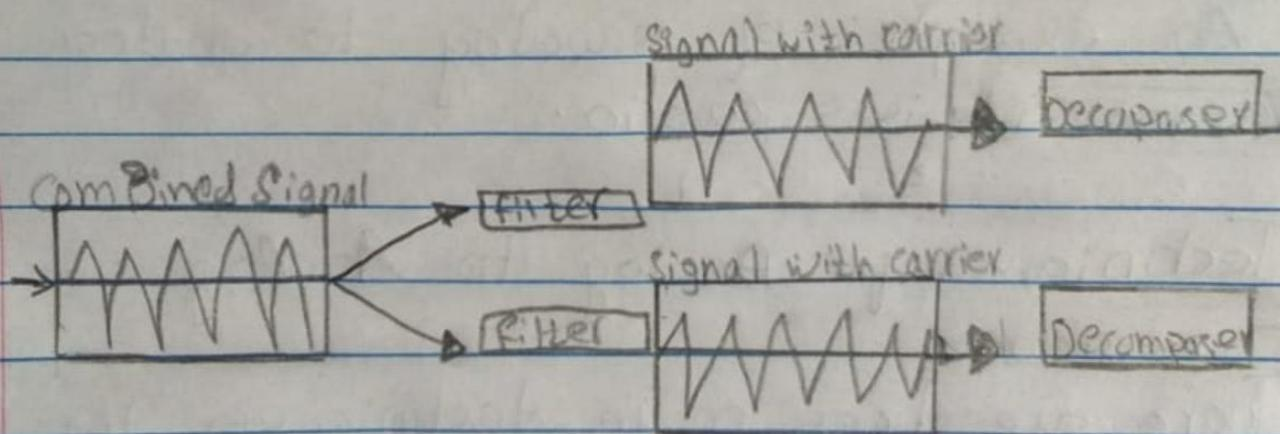 Signal with carrier
Decopaser
ComBined Signal
Filter
Signal with carrier
Filter
Decomposer